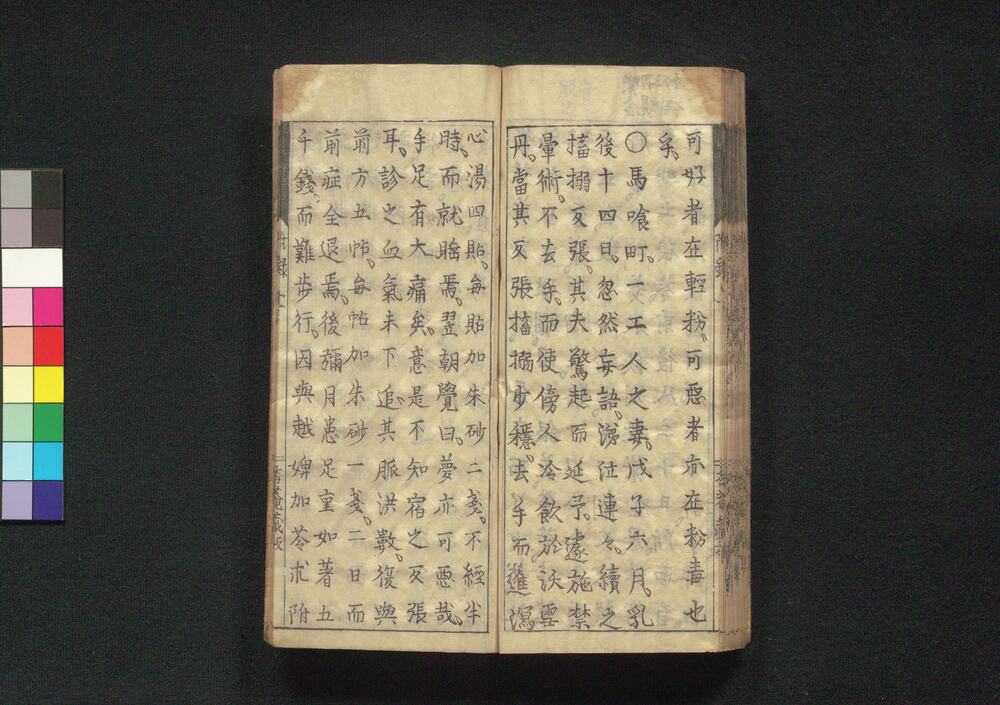 可好者在輕粉。可惡者亦在粉毒也
乎。
〇馬喰町。一工人之妻。戊子六月。乳
後十四日。忽然妄語。涕泣連々。續之
搐搦反張。其夫驚起而延予。遽施禁
暈術。不去手。而使傍人冷飲於沃雪
丹。當其反張搐搦少穩。去手而進瀉
心湯四貼。每貼加朱砂二戔。不經半
時。而就眠焉。翌朝覺曰。夢亦可惡哉。
手足有大痛矣。意是不知宿之反張
耳。診之血氣未下。追其脈洪數。復與
前方五帖。每帖加朱砂一戔。二日而
前症全退焉。後彌月患足重如著五
千錢。而難步行。因與越婢加苓朮附
附錄